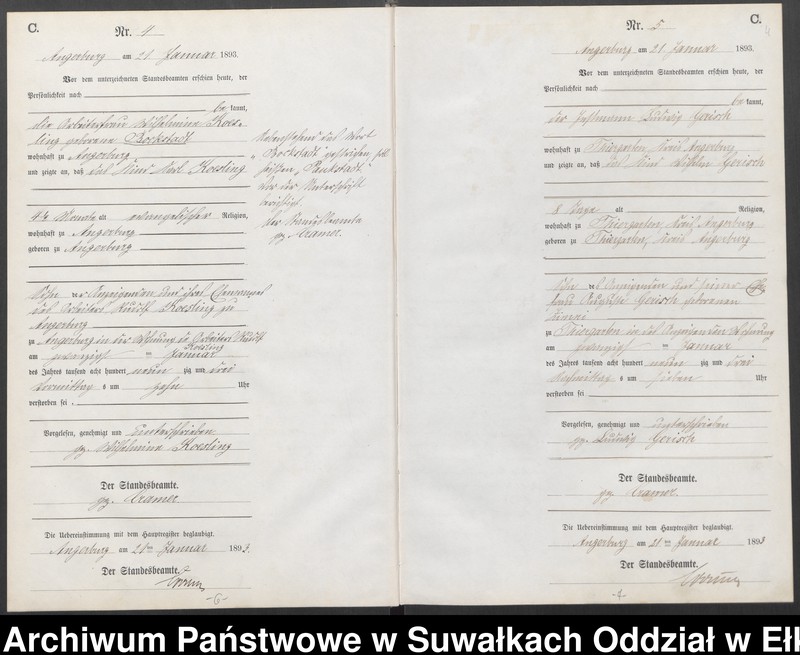 C.
Nr. 4
Angerburg am 21 Januar 1893.
Vor dem unterzeichneten Standesbeamten erschien heute, der
Persönlichkeit nach
be kannt,
die Arbeiterfrau Wilhelmine Koes-
ling geborene Bockstadt
wohnhaft zu Angerburg
und zeigte an, daß das Kind Karl Koesling
alt evangelischer Religion,
wohnhaft zu Angerburg
geboren zu Angerburg
Sohn der Anzeigenden und ihres Ehemannes
des Arbeiters Rudolf Koesling zu
Angerburg
zu Angerburg in der Wohnung des Arbeiters Rudolf
Koesling
am zwanzigsten Januar
des Jahres tausend acht hundert neun zig und drei
Vormittag s um zehn Uhr
verstorben sei.
Vorgelesen, genehmigt und unterschrieben
gz. Wilhelmine Koesling
Der Standesbeamte.
gz. Cramer
Die Uebereinstimmung mit dem Hauptregister beglaubigt.
Angerburg am Januar 1893.
Der Standesbeamte.
-6-
Nebenstehend das Wort
"Bockstadt" gestrichen, soll
heißen "Paukstadt".
Vor der Unterschrift
berichtigt.
Der Standesbeamte
gz. Cramer.
C.
Nr. 5
Angerburg am 21 Januar 1893.
Vor dem unterzeichneten Standesbeamten erschien heute, der
Persönlichkeit nach
be kannt,
der Ludwig Gerisch
wohnhaft zu Thiergarten, Kreis Angerburg
und zeigte an, daß das Kind Wilhelm Gerisch
8 Tage alt Religion,
wohnhaft zu Thiergarten, Kreis Angerburg
geboren zu Thiergarten, Kreis Angerburg
Sohn des Anzeigenden und seiner Ehe-
frau Auguste Gerisch geborenen
zu Thiergarten in des Anzeigenden Wohnung
am zwanzigsten Januar
des Jahres tausend acht hundert neun zig und drei
Nachmittag s um sieben Uhr
verstorben sei
Vorgelesen, genehmigt und unterschrieben
gz. Ludwig Gerisch
Der Standesbeamte.
gz. Cramer.
Die Uebereinstimmung mit dem Hauptregister beglaubigt.
Angerburg am 21ten Januar 1893
Der Standesbeamte.
Archiwum Państwowe w Suwałkach Oddział w Ełk